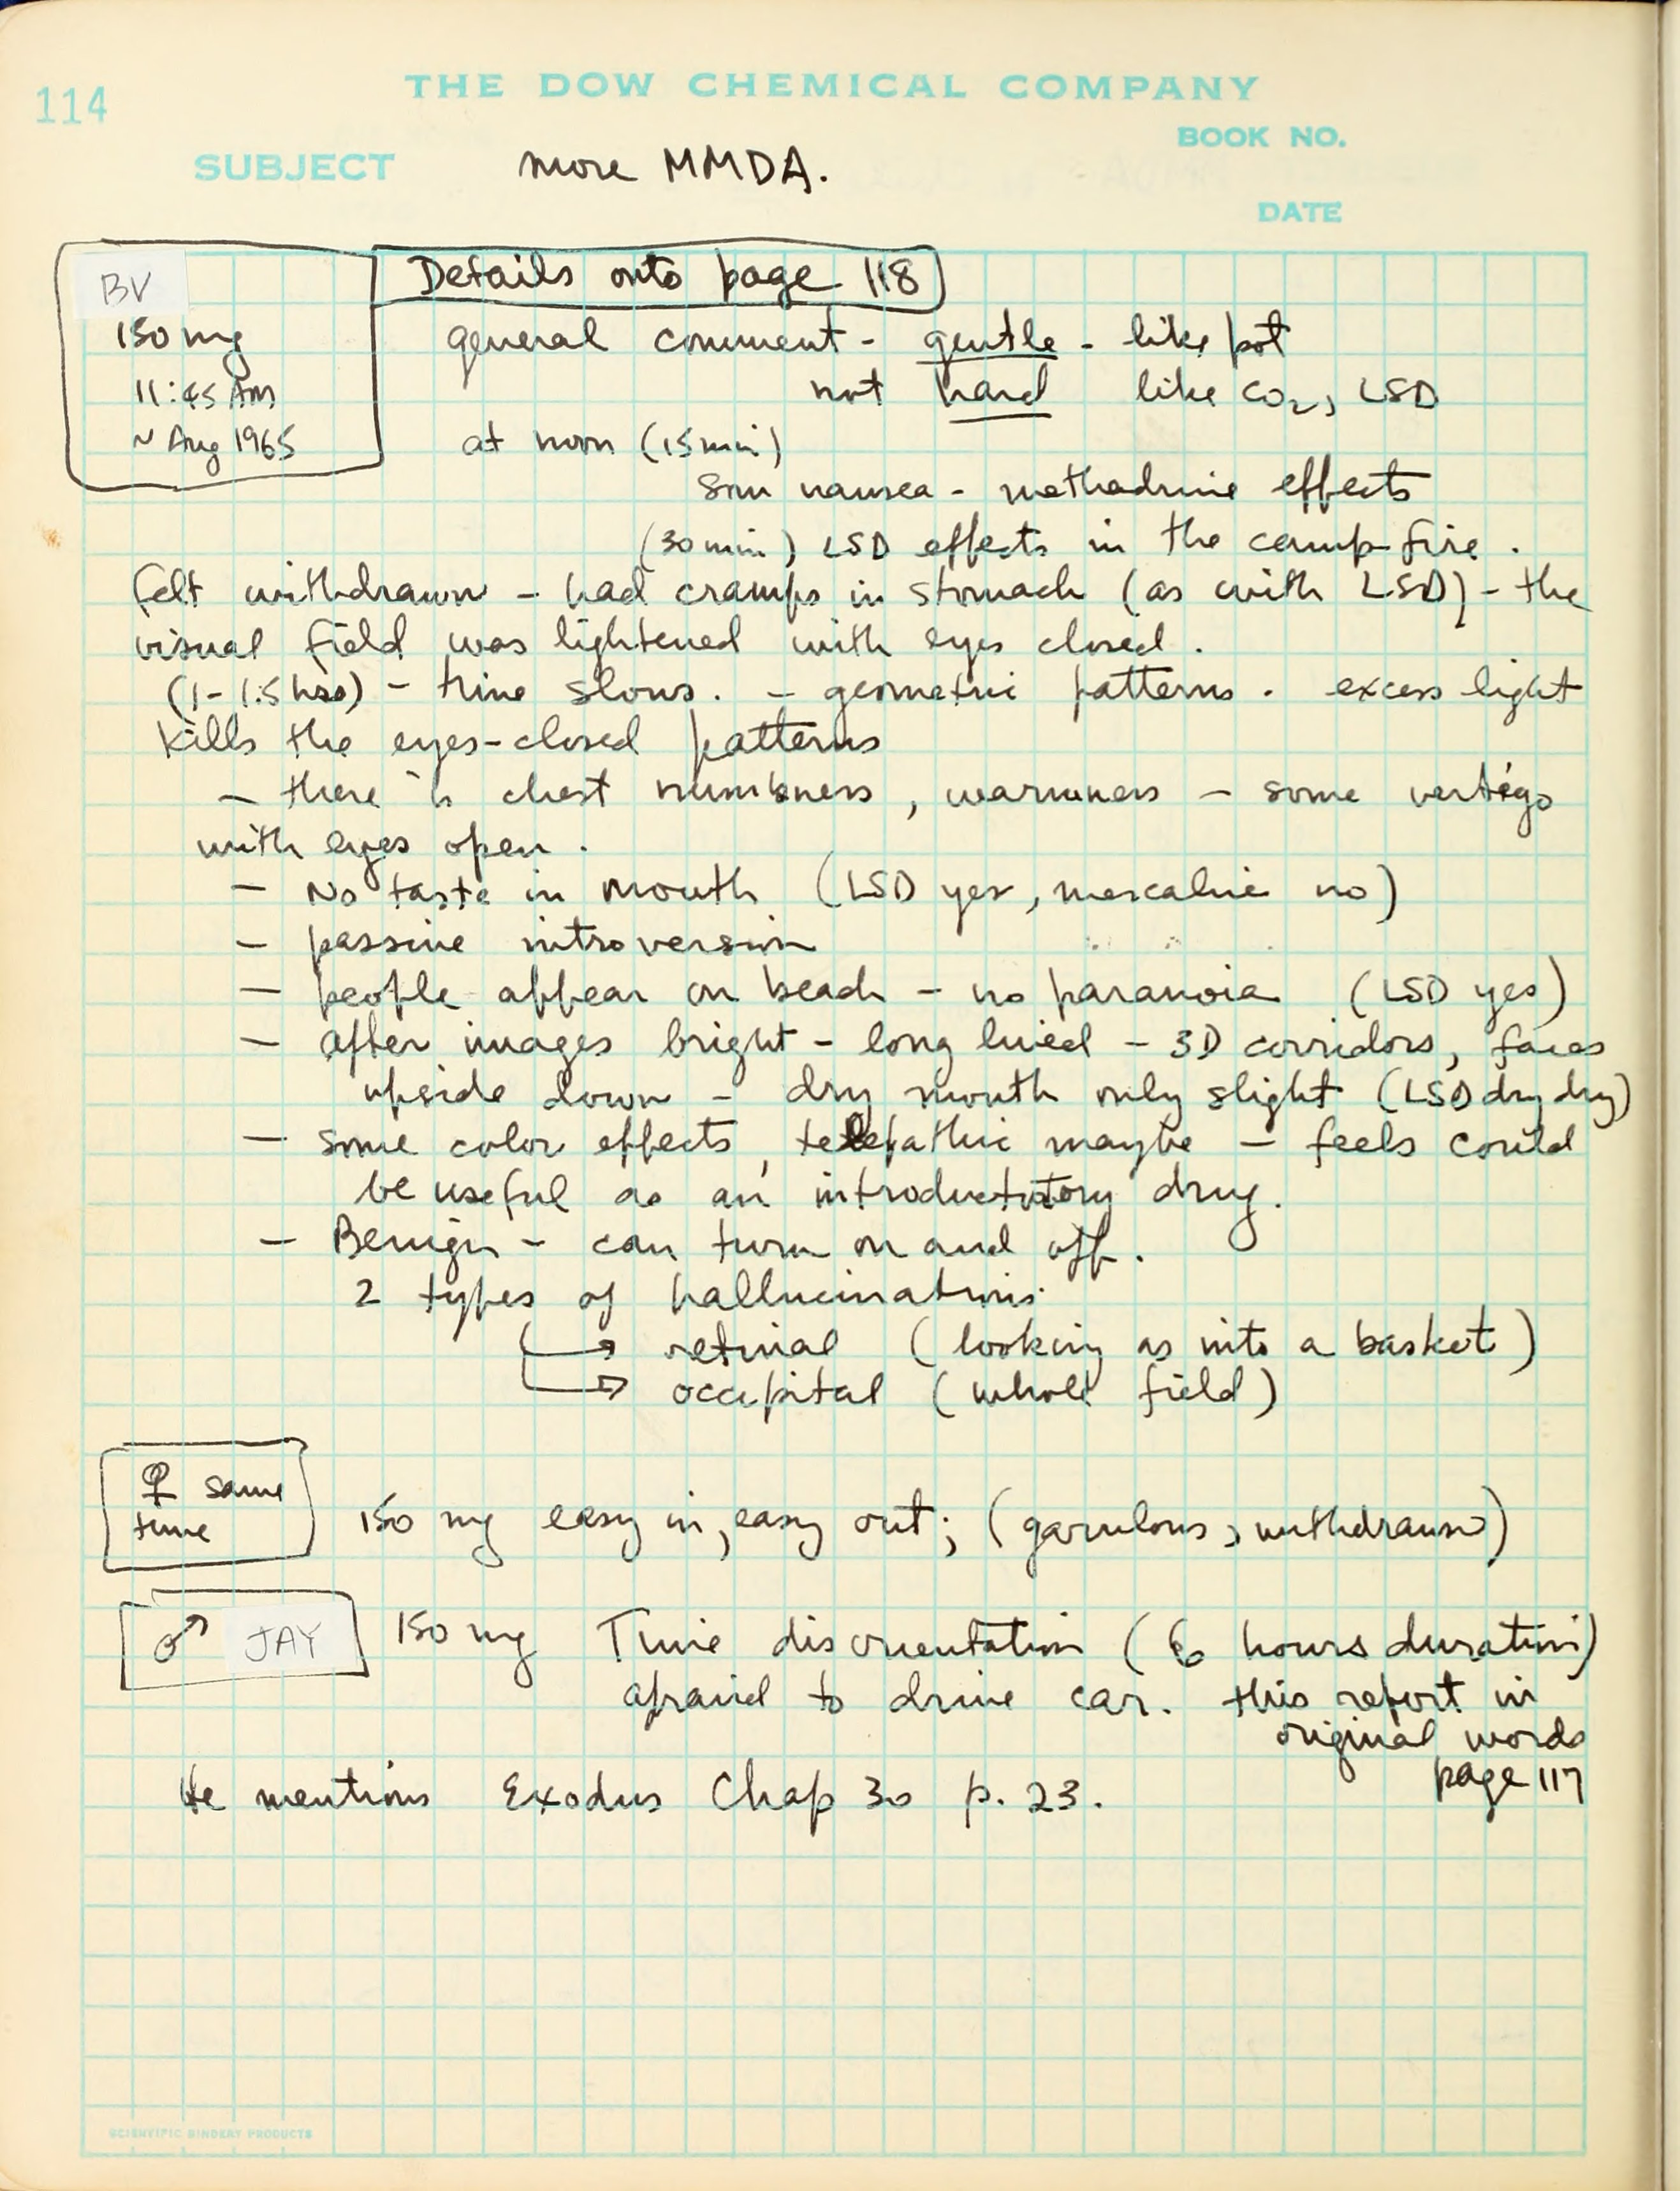 114
THE DOW CHEMICAL COMPANY
BOOK NO.
SUBJECT more MMDA.
DATE
BV
150 mg
11:45 AM
~ Aug 1965
Details onto page 118
general comment - gentle - like pot
not hard like CO2, LSD
at noon (15 min)
som nausea - methadrine effects
(30 min) LSD effects in the camp-fire.
felt withdrawn - had cramps in stomach (as with LSD) - the
visual field was lightened with eyes closed.
(1-1.5 hrs) - time slows. - geometric patterns. excess light
kills the eyes-closed patterns
- there is chest numbness, warmness - some vertigo
with eyes open.
- No taste in mouth (LSD yes, mescaline no)
- passive introversion
- people appear on beach - no paranoia (LSD yes)
- after images bright - long lived - 3D corridors, faces
upside down - dry mouth only slight (LSD dry dry)
- some color effects, telepathic maybe - feels could
be useful as an introductutory drug.
- Benign - can turn on and off.
2 types of hallucinations.
→ retinal (looking as into a basket)
→ occipital (whole field)
♀ same
time
150 mg easy in, easy out; (garulous, withdrawn)
♂ JAY
150 mg Time disorientation (6 hours duration)
afraid to drive car. this report in
original words
page 117
He mentions Exodus Chap 30 p. 23.
SCIENTIFIC BINDERY PRODUCTS